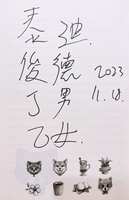 迪
俊德 2023
丁男 11.18.
乙女.